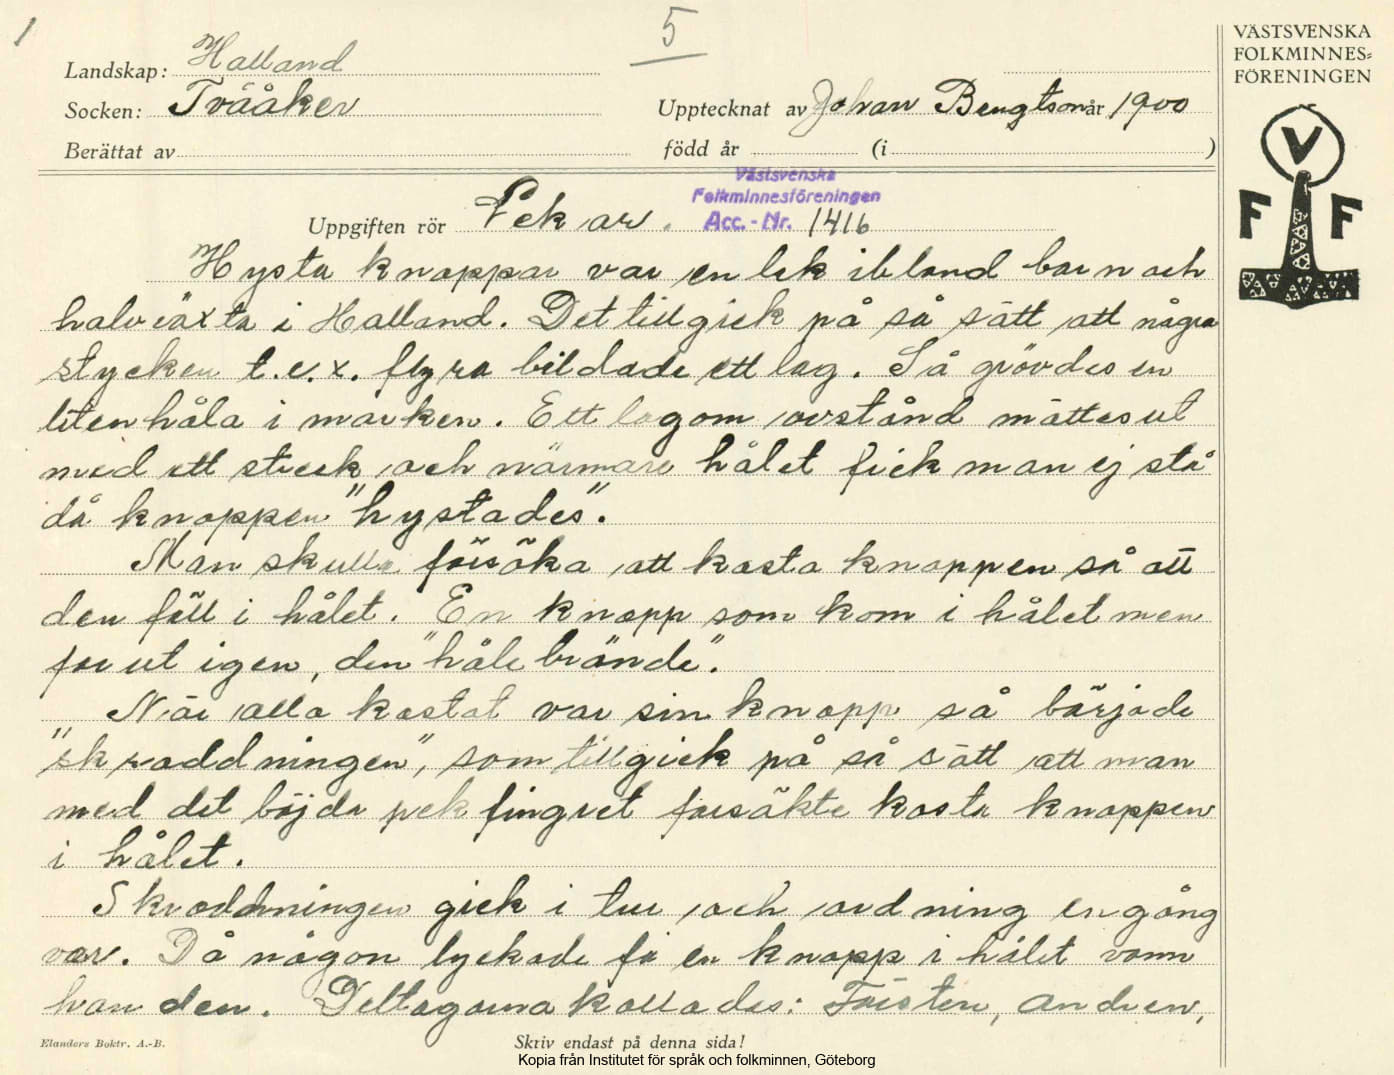 1
5
VÄSTSVENSKA
FOLKMINNES=
FÖRENINGEN
V
F F
Landskap: Halland
Socken: Tvååker
Upptecknat av Johan Bengtson år 1900
Berättat av född år (i )
Västsvenska
Folkminnesföreningen
Acc.-Nr. 1416
Uppgiften rör Lekar.
Hysta knappar var en lek ibland barn och
halvväxta i Halland. Det tillgick på så sätt att några
stycken t.e.x. fyra bildade ett lag. Så grävdes en
liten håla i marken. Ett lagom avstånd mättes ut
med ett streck och närmare hålet fick man ej stå
då knappen "hystades".
Man skulle försöka att kasta knappen så att
den föll i hålet. En knapp som kom i hålet men
for ut igen, den "håle brände".
När alla kastat var sin knapp så började
"skraddningen", som tillgick på så sätt att man
med det böjda pekfingret försökte kasta knappen
i hålet.
Skraddningen gick i tur och ordning en gång
var. Då någon lyckade få en knapp i hålet vann
han den. Deltagarna kallades: Försten, andren,
Elanders Boktr. A.-B.
Skriv endast på denna sida!
Kopia från Institutet för språk och folkminnen, Göteborg